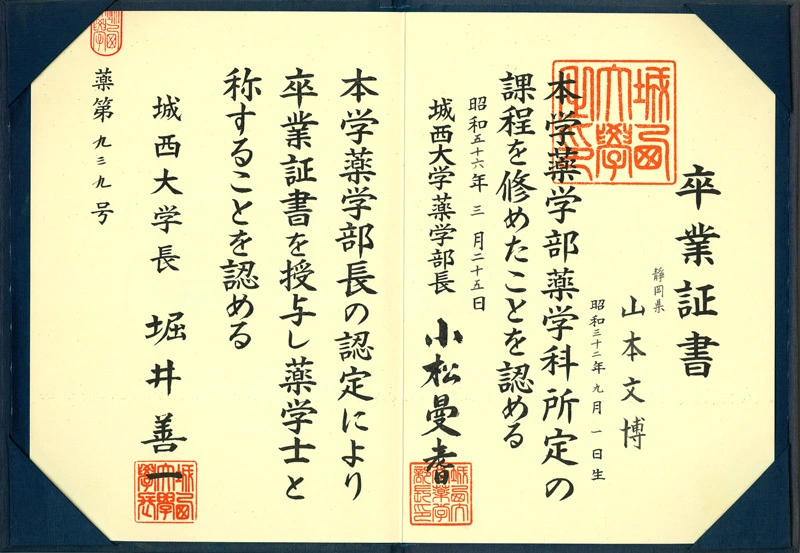 卒業証書
静岡県
山本文博
昭和三十二年九月一日生
本学薬学部薬学科所定の
課程を修めたことを認める
昭和五十六年三月二十五日
城西大学薬学部長 小松曼耆
本学薬学部長の認定により
卒業証書を授与し薬学士と
称することを認める
城西大学長 堀井善一
薬第九三九号